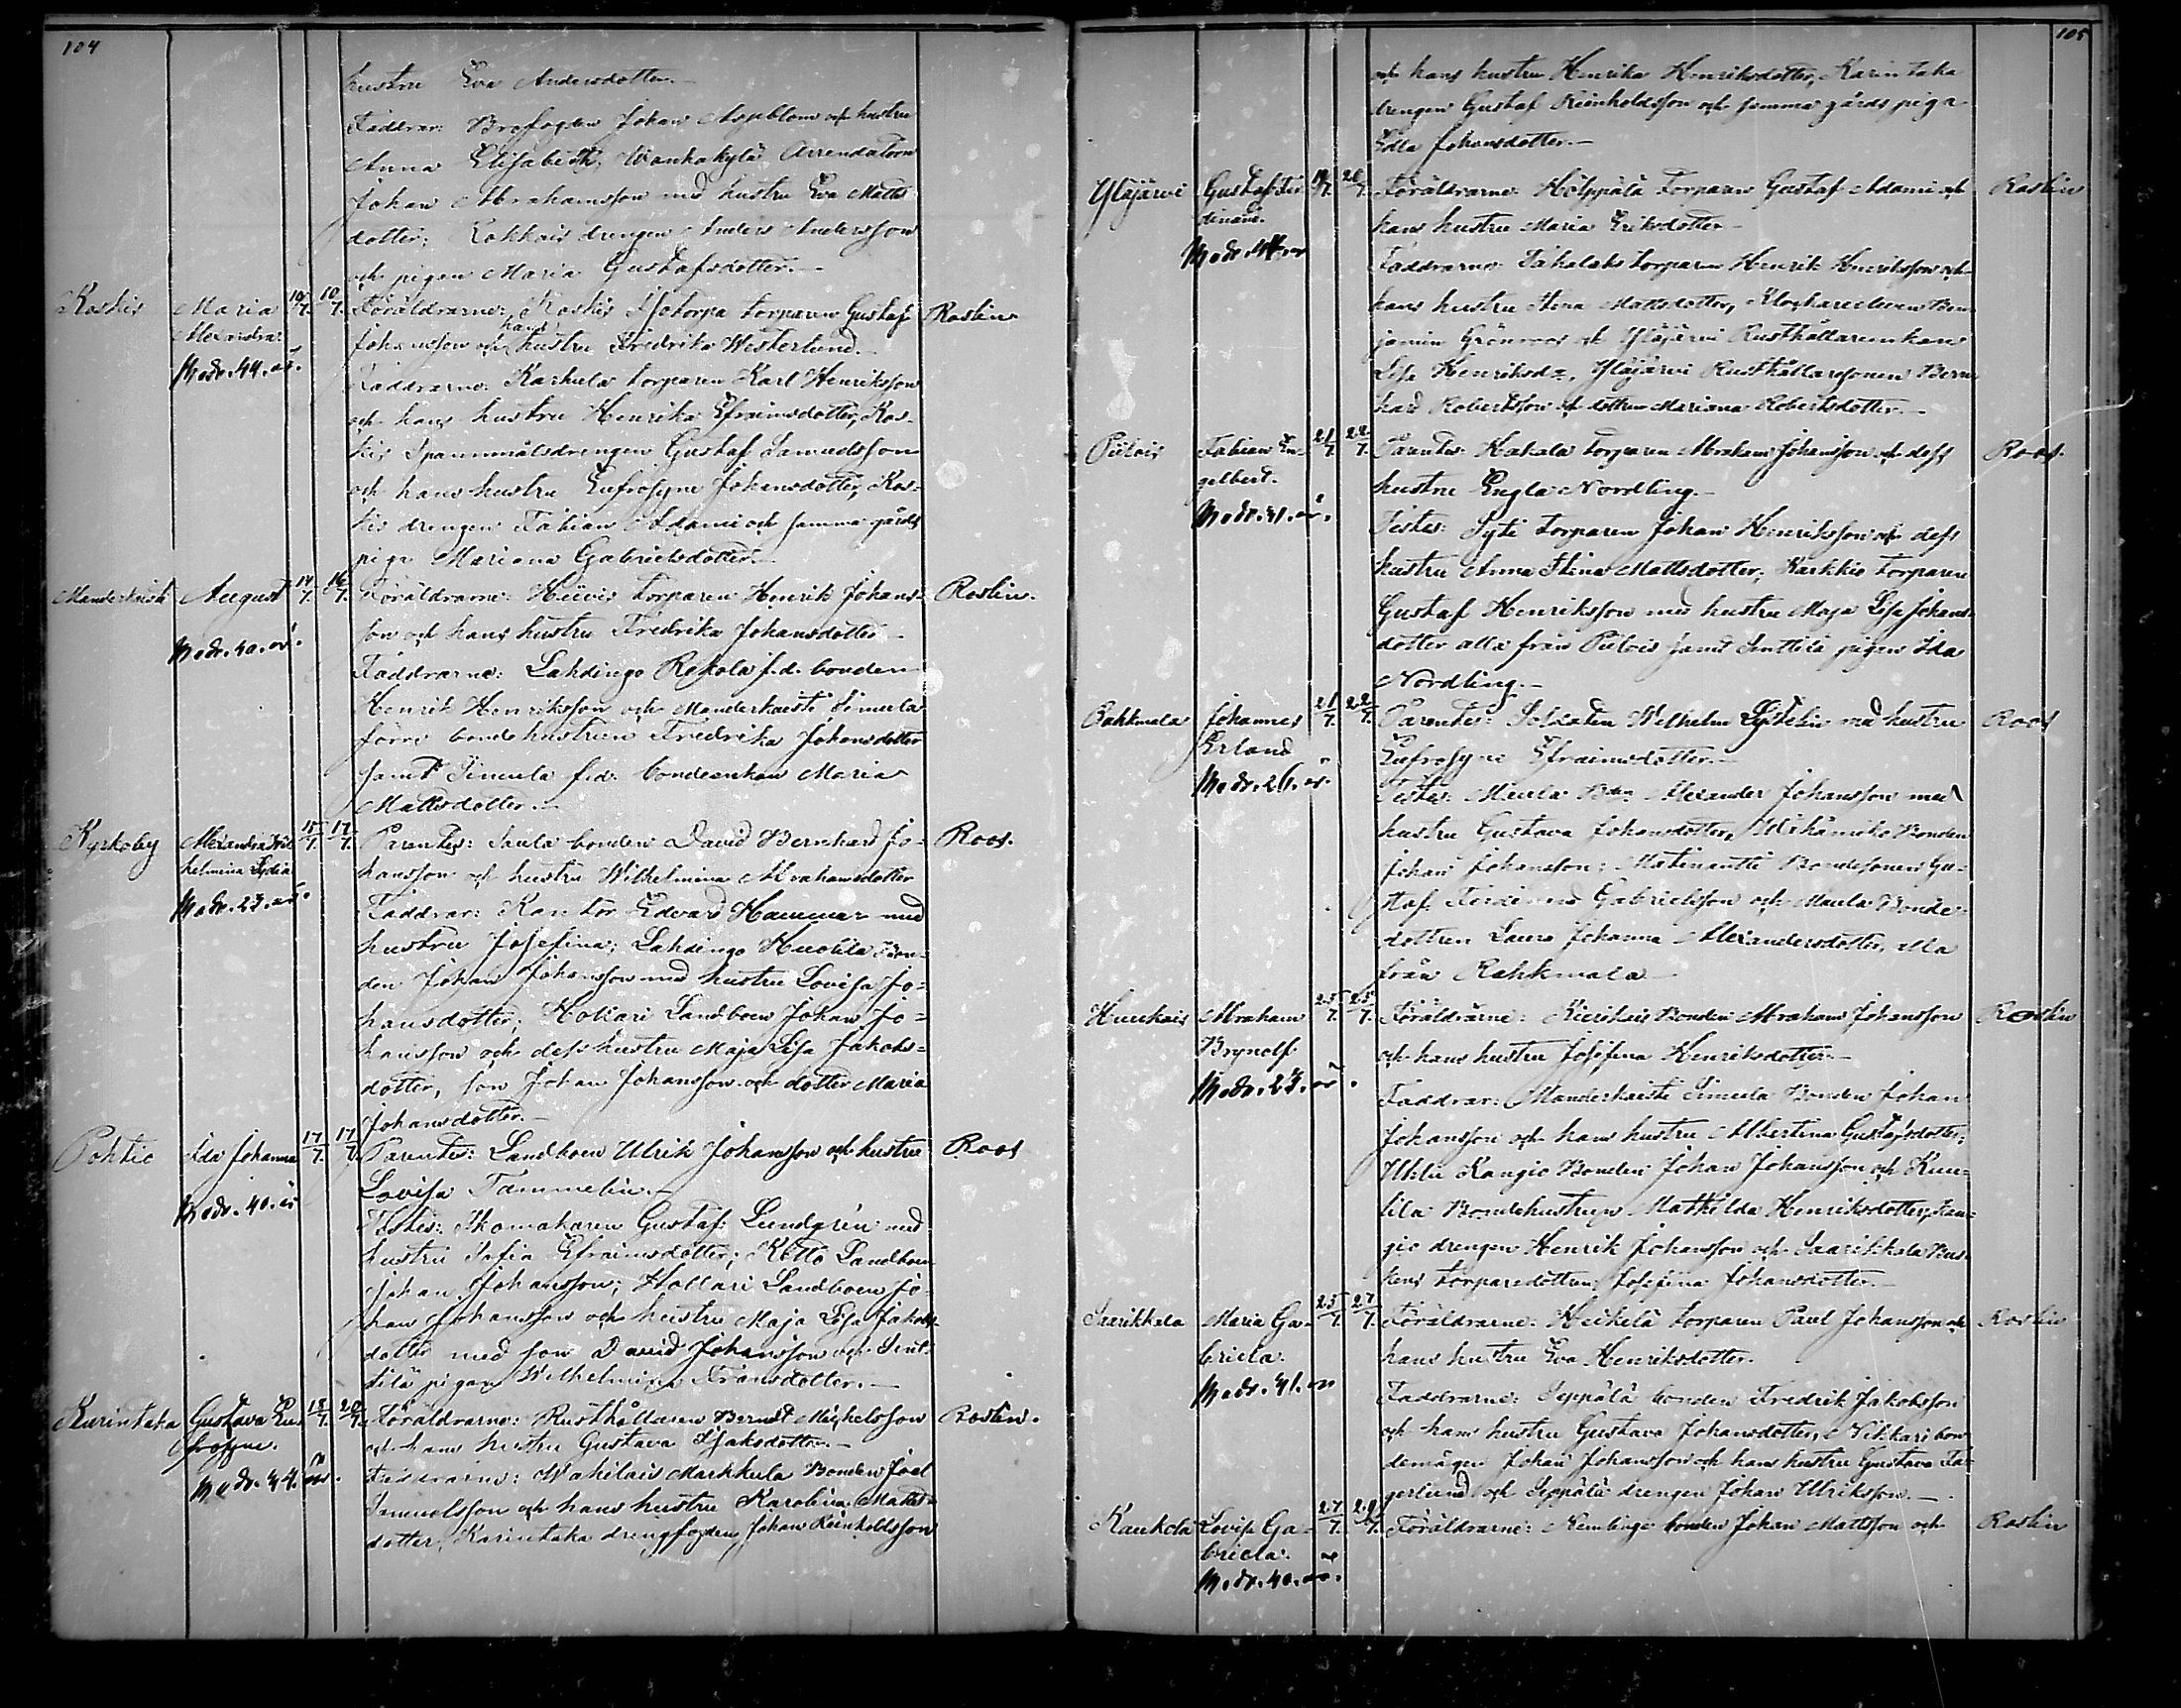 104
hustru Eva Andersdotter.
Faddrar: Brofogden Johan Aspeblom och hustru
Anna Elisabeth, Wanhakylä Arrendatorn
Johan Abrahamsson med hustru Eva Matts
dotter; drengen Anders Andersson
och pigan Maria Gustafsdotter.
Koskis Maria 10/7. 10/7. Föräldrarne: Koskis Isotorpa torparen Gustaf Roslin
Alexandra. Johansson och hans hustru Fredrika Westerlund.
Modr. 44. år. Faddrarne: Karhula torparen Karl Henriksson
och hans hustru Henrika Efraimsdotter, Kos-
kis Spannmålsdrengen Gustaf Samuelsson
och hans hustru Eufrosyne Johansdotter, Kos-
kis drengen Fabian Adami och samma gårds
piga Mariana Gabrielsdotter.
August 14/7. 16/7. Föräldrarne: torparen Henrik Johans- Roslin.
Modr. 40. år. son och hans hustru Fredrika Johansdotter
Faddrarne: Lahdingo Rekola f.d. bonden
Henrik Henriksson och Manderkaisti Simula
förre bondehustrun Fredrika Johansdotter
samt Simula f.d. bondeenkan Maria
Mattsdotter.
Kyrkoby Alexandra Wil- 15/7. 17/7. Parentes: Saula bonden David Bernhard Jo- Roos.
helmina Lydia hansson och hustru Wilhelmina Abrahamsdotter
Modr. 23. år. Faddrar: Kantor Edvard Hammar med
hustru Josefina; Lahdingo Huotila Bon-
den Johan Johansson med hustru Lovisa Jo-
hansdotter; Hollari Landboen Johan Jo-
hansson och dess hustru Maja Lisa Jakobs-
dotter, son Johan Johansson och dotter Maria
Johansdotter.
Pohtio Ida Johanna 17/7. 17/7. Parentes: Landboen Ulrik Johansson och hustru Roos
Modr. 40. år Lovisa Tammelin.
Testes: Skomakaren Gustaf Lundgrén med
hustru Sofia Efraimsdotter; Ketto Landboen
Johan Johansson; Hollari Landboen Jo-
han Johansson och hustru Maja Lisa Jakobs-
dotter med son David Johansson och Sint-
tilä pigan Wilhelmina Fransdotter.
Karintaka Gustava Eu- 18/7. 20/7. Föräldrarne: Rusthållaren Berndt Mickelsson Roslin.
frosyne. och hans hustru Gustava Isaksdotter.
Modr. 44. år. Faddrarne: Wahilais Markkula Bonden Joel
och hans hustru Karolina Matts-
dotter, Karintaka drengfogden Johan Reinholdsson
105
och hans hustru Henrika Henriksdotter, Karintaka
drengen Gustaf Reinholdsson och samma gårds piga
Edla Johansdotter.
Yläjärvi Gustaf Fer- 19/7. 20/7. Föräldrarne: Hölppälä torparen Gustaf Adami och Roslin
dinand. hans hustru Maria Eriksdotter
Modr. Faddrarne torparen Henrik Henriksson och
hans hustru Stina Mattsdotter, Klockareeleven Ben-
jamin Grönroos och Yläjärvi Rusthållareenkan
Lisa Henriksd., Yläjärvi Rusthållaresonen Bern-
hard Robertsson och dottren Mariana Robertsdotter.
Piilois Fabian En- 21/7. 22/7. Parentes: Hakala torparen Abraham Johansson och dess Roos.
gelbert. hustru Engla Nordling.
Modr. 41. år. Testes: Syti torparen Johan Henriksson och dess
hustru Anna Stina Mattsdotter; Karkkio torparen
Gustaf Henriksson med hustru Maja Lisa Johans-
dotter alla från Piilois samt Senttilä pigan Ida
Nordling.
Rahkmala Johannes 21/7. 22/7. Parentes: Soldaten Wilhelm med hustru Roos
Erland Eufrosyne Efraimsdotter.
Modr. 26. år. Testes: Maula Bden Alexander Johansson med
hustru Gustava Johansdotter, Bonden
Johan Johansson; Matinantti Bondesonen Gu-
staf Ferdinand Gabrielsson och Maula Bonde-
dottren Laura Johanna Alexandersdotter, alla
från Rahkmala
Abraham 25/7. 25/7. Föräldrarne: Bonden Abraham Johansson Roslin
Brynolf och hans hustru Josefina Henriksdotter.
Modr. 23. år. Faddrar: Manderkaisti Simula Bonden Johan
Johansson och hans hustru Albertina Gustafsdotter,
Uhlu Kangio Bonden Johan Johansson och Kuu-
lila Bondehustrun Mathilda Henriksdotter, Kan-
gio drengen Henrik Johansson och Saarikkala
torparedottren Josefina Johansdotter.
Saarikkala Maria Ga- 25/7. 27/7. Föräldrarne: Heikelä torparen Paul Johansson och Roslin
briela. hans hustru Eva Henriksdotter.
Modr. 41. år Faddrarne: Seppälä bonden Fredrik Jakobsson
och hans hustru Gustava Johansdotter, Vikkari bon-
demågen Johan Johansson och hans hustru Gustava Fa-
gerlund och Seppälä drengen Johan Ulriksson.
Kaukola Lovisa Ga- 27/7. 29/7. Föräldrarne: Nemlinge bonden Johan Mattsson och Roslin
briela.
Modr. 40. år.